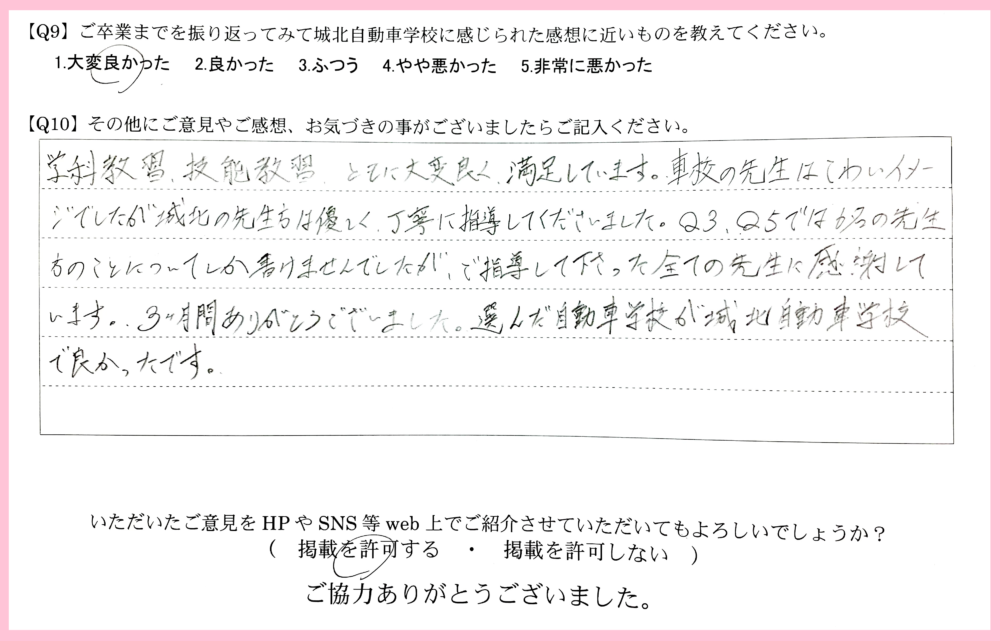 【Q9】ご卒業までを振り返ってみて城北自動車学校に感じられた感想に近いものを教えてください。
1.大変良かった 2.良かった 3.ふつう 4.やや悪かった 5.非常に悪かった
【Q10】その他にご意見やご感想、お気づきの事がございましたらご記入ください。
学科教習、技能教習、ともに大変良く、満足しています。車校の先生はこわいイメー
ジでしたが城北の先生方は優しく、丁寧に指導してくださいました。Q3、Q5では の先生
方のことについてしか書けませんでしたが、ご指導して下さった全ての先生に感謝して
います。3ヶ月間ありがとうございました。選んだ自動車学校が城北自動車学校
で良かったです。
いただいたご意見をHPやSNS等web上でご紹介させていただいてもよろしいでしょうか？
( 掲載を許可する ・ 掲載を許可しない )
ご協力ありがとうございました。